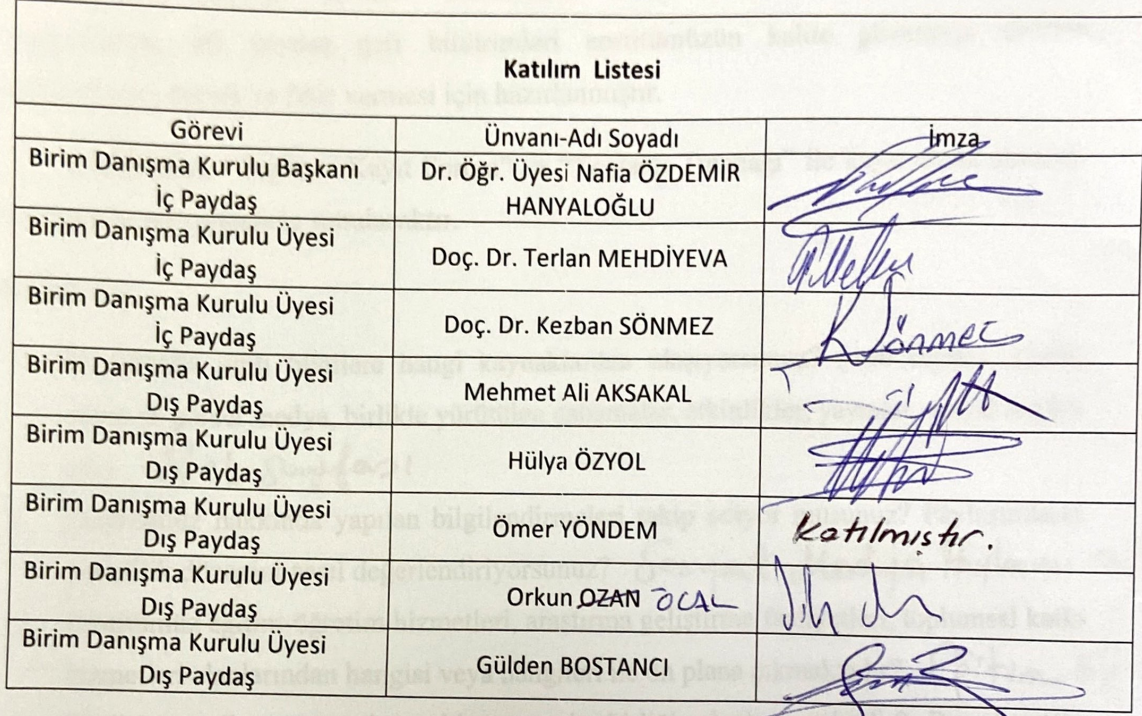 Katılım Listesi
Görevi Ünvanı-Adı Soyadı İmza
Birim Danışma Kurulu Başkanı Dr. Öğr. Üyesi Nafia ÖZDEMİR
İç Paydaş HANYALOĞLU
Birim Danışma Kurulu Üyesi
İç Paydaş Doç. Dr. Terlan MEHDİYEVA
Birim Danışma Kurulu Üyesi
İç Paydaş Doç. Dr. Kezban SÖNMEZ K Sönmez
Birim Danışma Kurulu Üyesi
Dış Paydaş Mehmet Ali AKSAKAL
Birim Danışma Kurulu Üyesi
Dış Paydaş Hülya ÖZYOL
Birim Danışma Kurulu Üyesi
Dış Paydaş Ömer YÖNDEM Katılmıştır.
Birim Danışma Kurulu Üyesi
Dış Paydaş Orkun OZAN ÖCAL
Birim Danışma Kurulu Üyesi
Dış Paydaş Gülden BOSTANCI